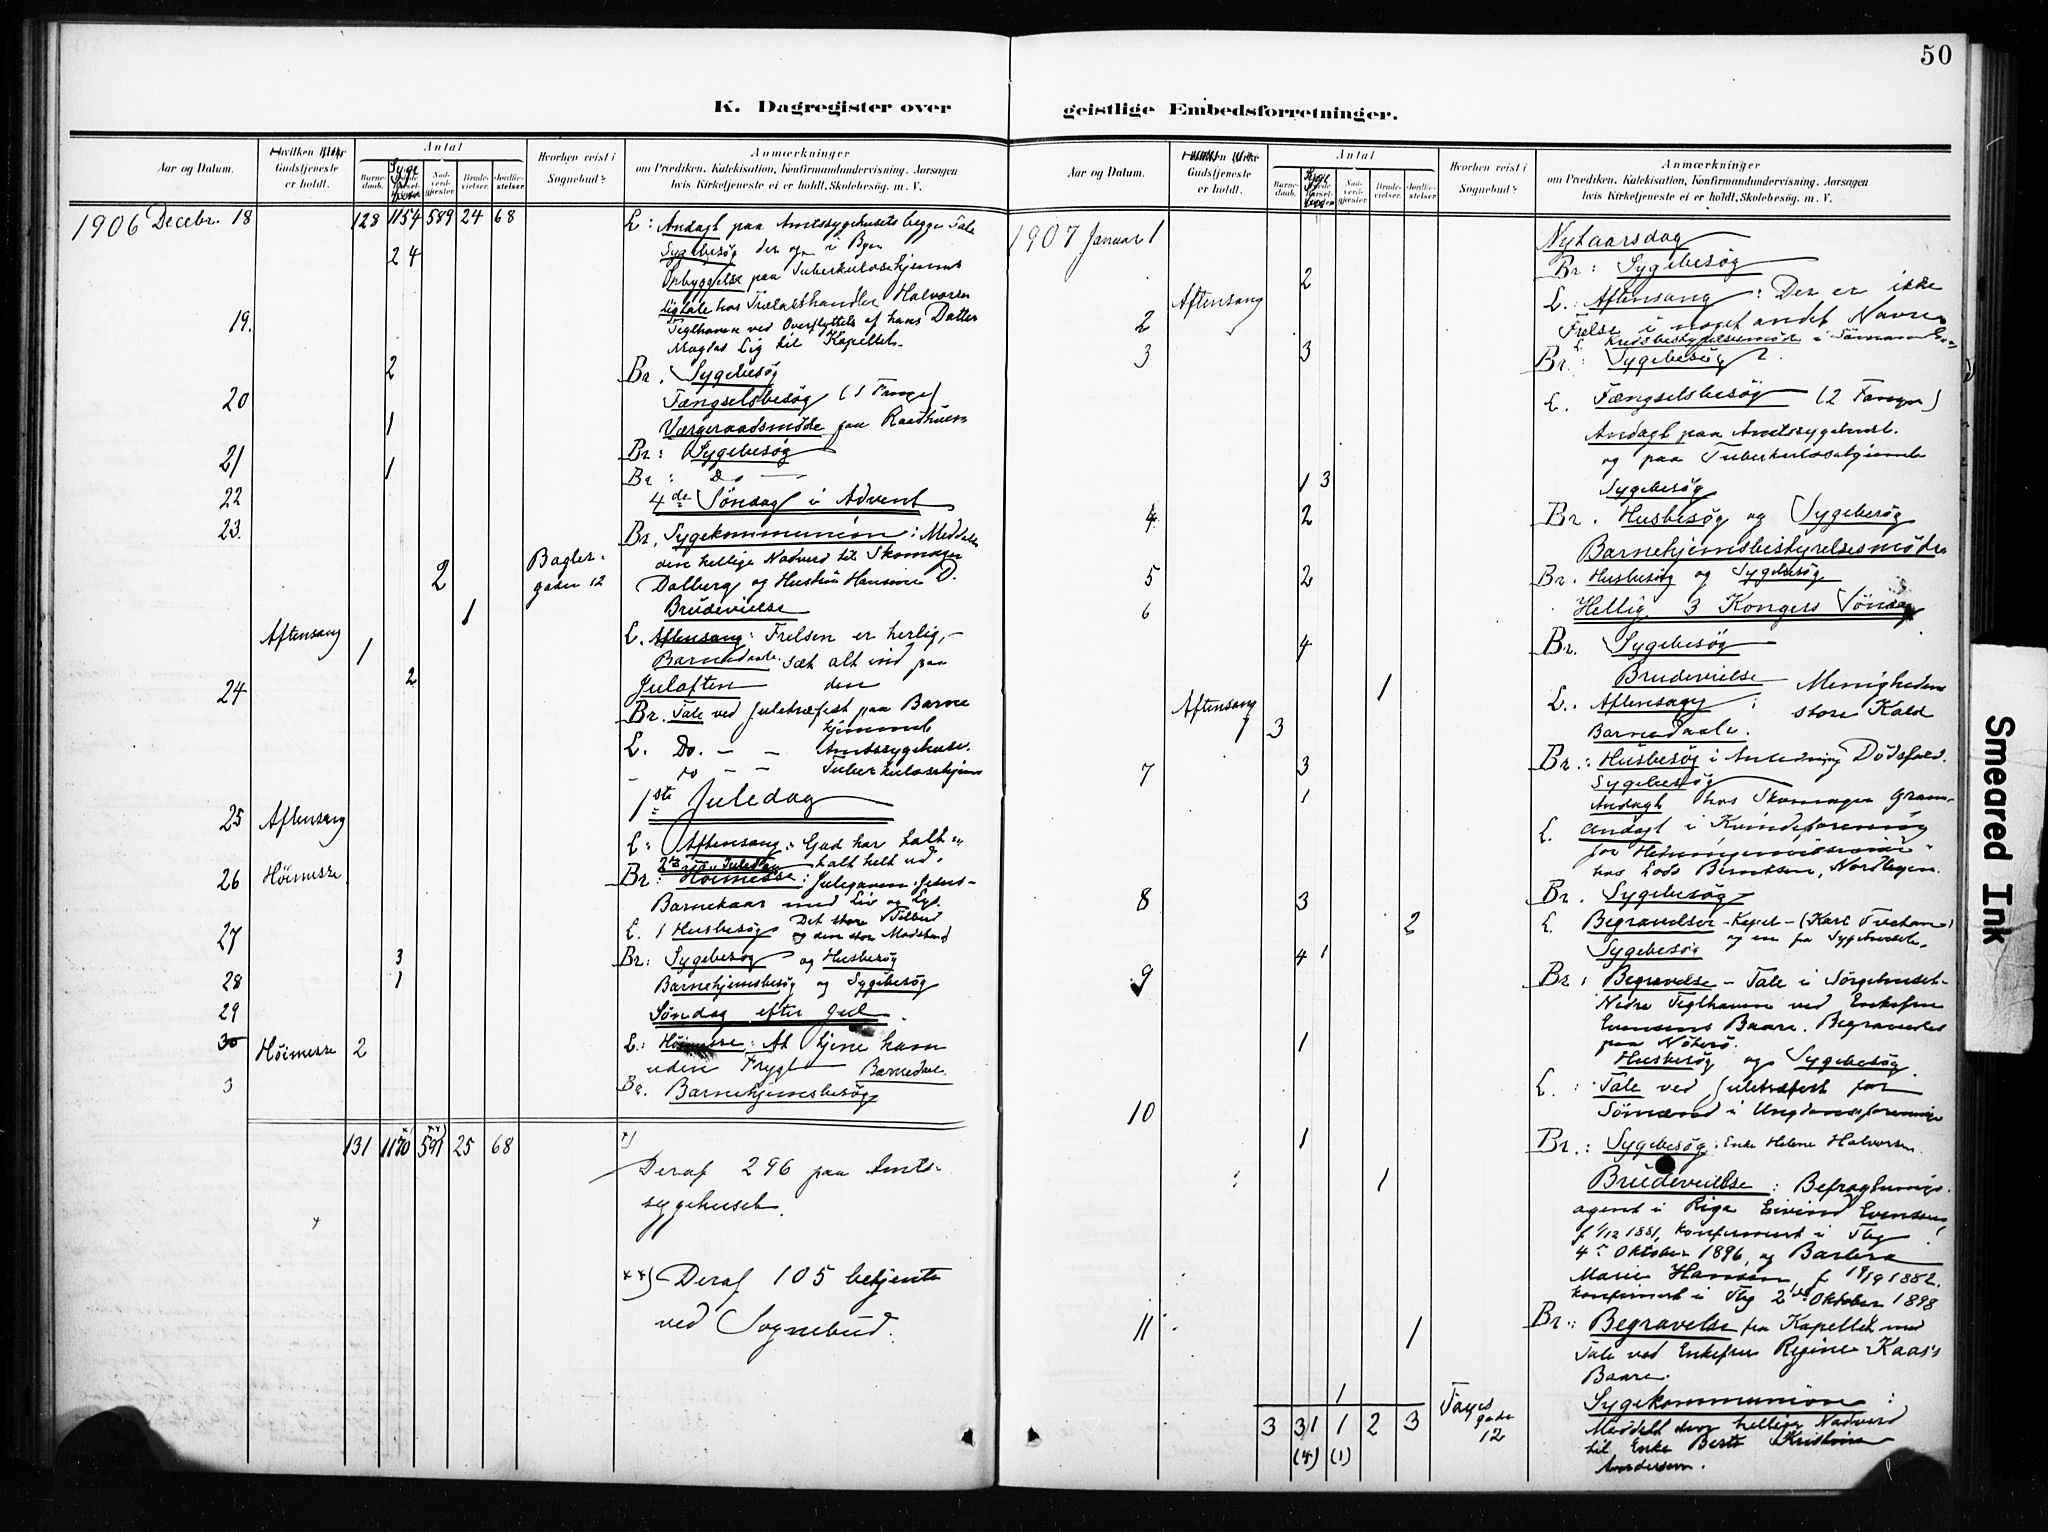 50
K. Dagregister over
geistlige Embedsforretninger.
Aar og Datum.
Hvilken
Gudstjeneste
er holdt.
Antal
Barne-
daab.
Syge
Nad-
verd-
gjester
Brude-
vielser.
Jordfæ-
stelser
Hvorhen reist i
Sognebud?
Anmærkninger
om Prædiken, Katekisation, Konfirmandundervisning, Aarsagen
hvis Kirketjeneste ei er holdt, Skolebesøg, m. V.
1906 Decebr. 18 128 1154 589 24 68 L: Andagt paa Amtssygehusets begge Tale
24 Sygebesøg der og i Byen
Opbyggelse paa Tuberkulosehjemmet
19. Ligtale hos Trælasthandler Halvorsen
Teglhaven ved Overflyttelse af hans Datter
Magdas Lig til Kapellet.
2 Br. Sygebesøg
20 Fængselsbesøg (1 Fange)
1 Værgeraadsmøde paa Raadhusen
Br: Sygebesøg
21 1 Br: Do
22 4de Søndag i Advent
23. Br. Sygekommunion: Meddelte
Bagler- den hellige Nadverd til Skomager
2 gaden 12 Dalberg og Hustru Hansine D.
1 Brudevielse
Aftensang L. Aftensang: Frelsen er herlig,
1 Barnedaab. sæt alt ind paa
24 2 Juleaften den
Br. Tale ved Juletræfest paa Barne
hjemmet
L. Do. — — Amtssygehuse.
— do — — Tuberkulosehjem
1ste Juledag
25 Aftensang L: Aftensang: Gud har talt,
2den Juledag talt helt ud.
26 Høimesse Br: Høimesse: Julegaven: Jesus-
Barnekaar med Liv og Lys.
27 L. 1 Husbesøg Det store Tilbud
og den store Modstand
3 Br: Sygebesøg og Husbesøg
28 1 Barnehjemsbesøg og Sygebesøg
29 Søndag efter Jul
30 Høimesse 2 L: Høimesse: At tjene ham
uden Frygt Barnedaab.
3 Br. Barnehjemsbesøg
131 1170 x) 591 xx) 25 68 x)
Deraf 296 paa Amts-
sygehuset.
xx) Deraf 105 betjente
ved Sognebud.
Aar og Datum.
Gudstjeneste
er holdt.
Antal
Barne-
daab.
Nad-
verd-
gjester
Brude-
vielser.
Jordfæ-
stelser
Hvorhen reist i
Sognebud?
Anmærkninger
om Prædiken, Katekisation, Konfirmandundervisning, Aarsagen
hvis Kirketjeneste ei er holdt, Skolebesøg, m. V.
1907 Januar 1 Nytaarsdag
2 Br: Sygebesøg
Aftensang L. Aftensang: Der er ikke
2 Frelse i noget andet Navn.
L. Kredsbestyrelsesmøde i
3 3 Br: Sygebesøg
L. Fængselsbesøg (2 Fanger)
Andagt paa Amtssygehuset.
og paa Tuberkulosehjemmet
1 3 Sygebesøg
4 2 Br. Husbesøg og Sygebesøg
Barnehjemsbestyrelsesmøde
5 2 Br. Husbesøg og Sygebesøg
6 Hellig 3 Kongers Søndag
4 Br. Sygebesøg
1 Brudevielse
Aftensang L. Aftensang: Menighedens
1 3 Barnedaab. store Kald
7 3 Br.: Husbesøg i Anledning Dødsfald.
1 Sygebesøg
Andagt hos Skomager Gram.
L. Andagt i Kvindeforening
for Hedningemissionen
hos Lods Berntsen, Nordbyen.
8 3 Br. Sygebesøg
2 L. Begravelser - Kapel - (Karl )
og en fra Sygehuset.
4 1 Sygebesøg
9 Br: Begravelse - Tale i Sørgehuset
Nedre Teglhaven ved Enkefru
Evensens Baare. Begravedes
paa Nøterø.
1 Husbesøg og Sygebesøg
L: Tale ved Juletræfest for
10 Sømænd i Ungdomsforeningen
1 Br: Sygebesøg: Enke Helene Halvorsen.
1 Brudevielse: Befragtnings-
agent i Riga Eivind Evensen,
f. 1/12 1881, konfirmert i Tbg
4de Oktober 1896, og Barbara
Marie Hansen, f. 19/9 1882.
konfirmert i Tbg 2den Oktober 1898
11 1 Br.: Begravelse fra Kapellet med
Tale ved Enkefru Regine Kaas's
Baare.
1 Sygekommunion:
3 31 1 2 3 Fayes gade 12 Meddelt den hellige Nadverd
(4) (1) til Enke Berte Kristine
Andersen.
Smeared Ink